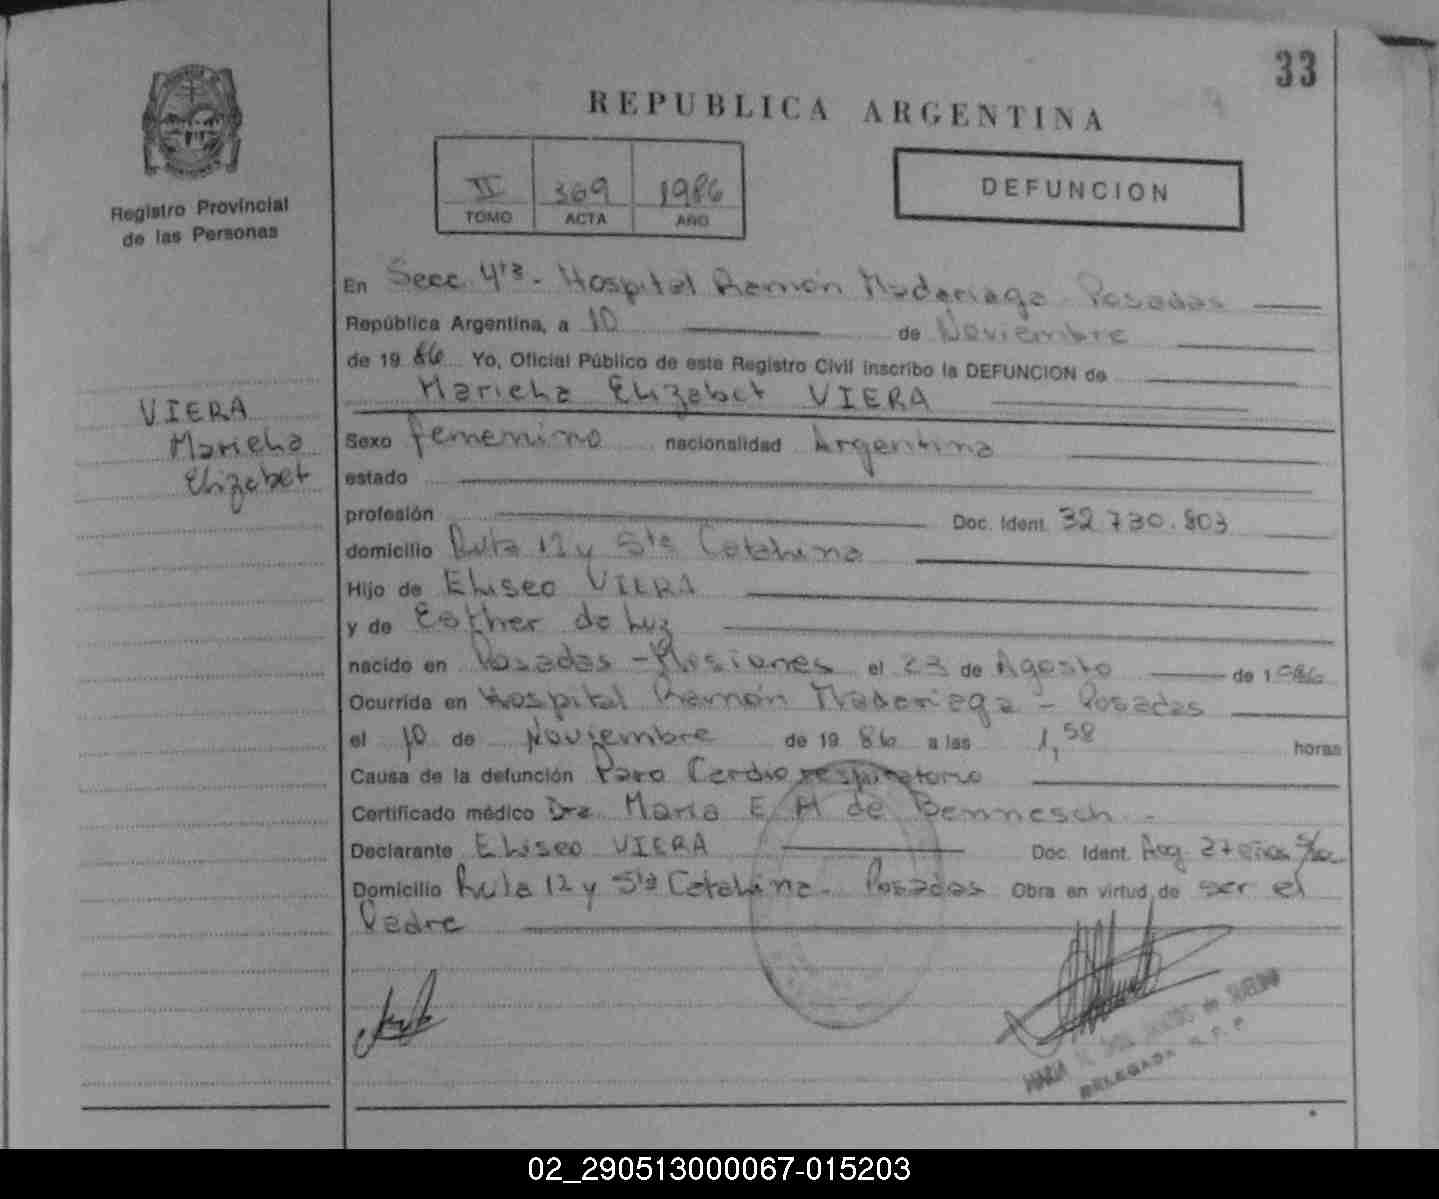 33
REPUBLICA ARGENTINA
DEFUNCION
II 369 1986
TOMO ACTA AÑO
Registro Provincial
de las Personas
VIERA
Mariela
Elizabet
En Secc. 4ta - Hospital Ramón Madariaga - Posadas
República Argentina, a 10 de Noviembre
de 19 86 Yo, Oficial Público de este Registro Civil inscribo la DEFUNCION de
Mariela Elizabet VIERA
Sexo femenino nacionalidad Argentina
estado
profesión Doc. Ident. 32.730.803
domicilio Ruta 12 y Sta Catalina
Hijo de Eliseo VIERA
y de Esther de Luz
nacido en Posadas - Misiones el 23 de Agosto de 1986
Ocurrida en Hospital Ramón Madariaga - Posadas
el 10 de Noviembre de 19 86 a las 1,58 horas
Causa de la defunción Paro Cardio respiratorio
Certificado médico Dra. María E. M de Bennesch -
Declarante Eliseo VIERA Doc. Ident. Arg. 27 años
Domicilio Ruta 12 y Sta Catalina - Posadas Obra en virtud de ser el
Padre
MARIA de
DELEGADA R. P. P.
02_290513000067-015203